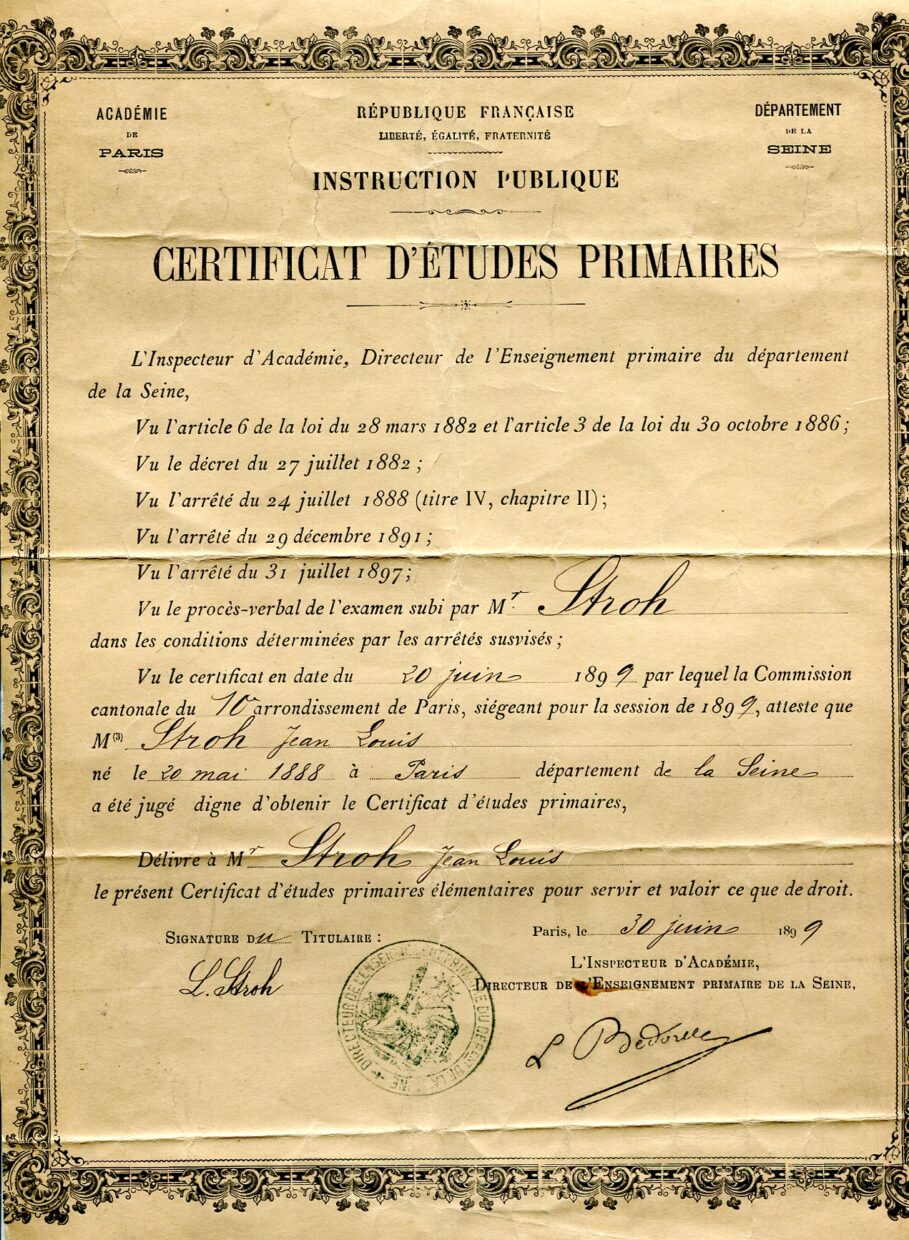 ACADÉMIE
DE
PARIS
RÉPUBLIQUE FRANÇAISE
LIBERTÉ, ÉGALITÉ, FRATERNITÉ
INSTRUCTION PUBLIQUE
DÉPARTEMENT
DE LA
SEINE
CERTIFICAT D'ÉTUDES PRIMAIRES
L'Inspecteur d'Académie, Directeur de l'Enseignement primaire du département
de la Seine,
Vu l'article 6 de la loi du 28 mars 1882 et l'article 3 de la loi du 30 octobre 1886;
Vu le décret du 27 juillet 1882;
Vu l'arrêté du 24 juillet 1888 (titre IV, chapitre II);
Vu l'arrêté du 29 décembre 1891;
Vu l'arrêté du 31 juillet 1897;
Vu le procès-verbal de l'examen subi par Mr. Stroh
dans les conditions déterminées par les arrêtés susvisés;
Vu le certificat en date du 20 juin 1899 par lequel la Commission
cantonale du 10e arrondissement de Paris, siégeant pour la session de 1899, atteste que
M(3) Stroh Jean Louis
né le 20 mai 1888 à Paris département de la Seine
a été jugé digne d'obtenir le Certificat d'études primaires,
Délivre à Mr Stroh Jean Louis
le présent Certificat d'études primaires élémentaires pour servir et valoir ce que de droit.
SIGNATURE DU TITULAIRE :
L. Stroh
Paris, le 30 juin 1899
L'INSPECTEUR D'ACADÉMIE,
DIRECTEUR DE L'ENSEIGNEMENT PRIMAIRE DE LA SEINE,
DIRECTEUR DE L'ENSEIG